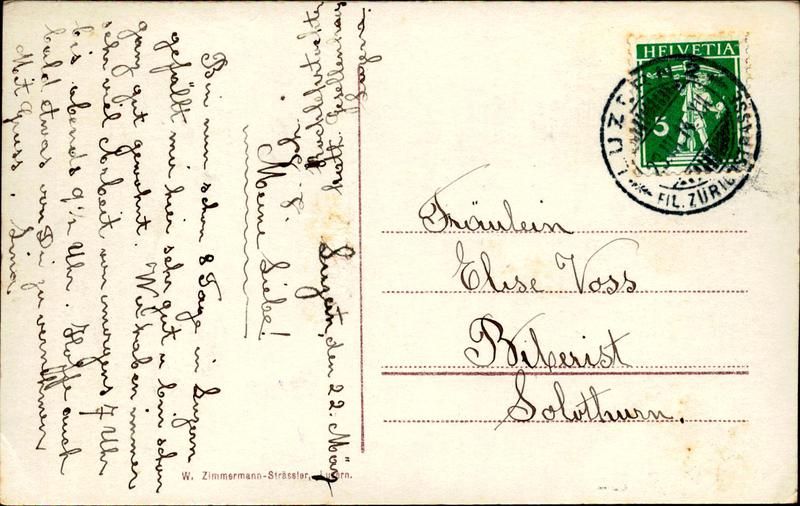 HELVETIA
5
LUZERN 2
FIL. ZÜRICHSTRASSE
Fräulein
Elise Voss
Biberist
Solothurn.
Luzern, den 22. März
Kochlehrtochter
kath. Gesellenhaus
Luzern
Meine Liebe!
Bin nun schon 8 Tage in Luzern
gefällt mir hier sehr gut u. bin schon
ganz gut gewohnt. Wir haben immer
sehr viel Arbeit von morgens 7 Uhr
bis abends 9½ Uhr. Hoffe auch
bald etwas von Dir zu vernehmen
Mit Gruss. Lina
W. Zimmermann-Strässler, Luzern.